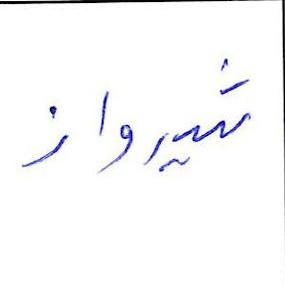 شیرواز